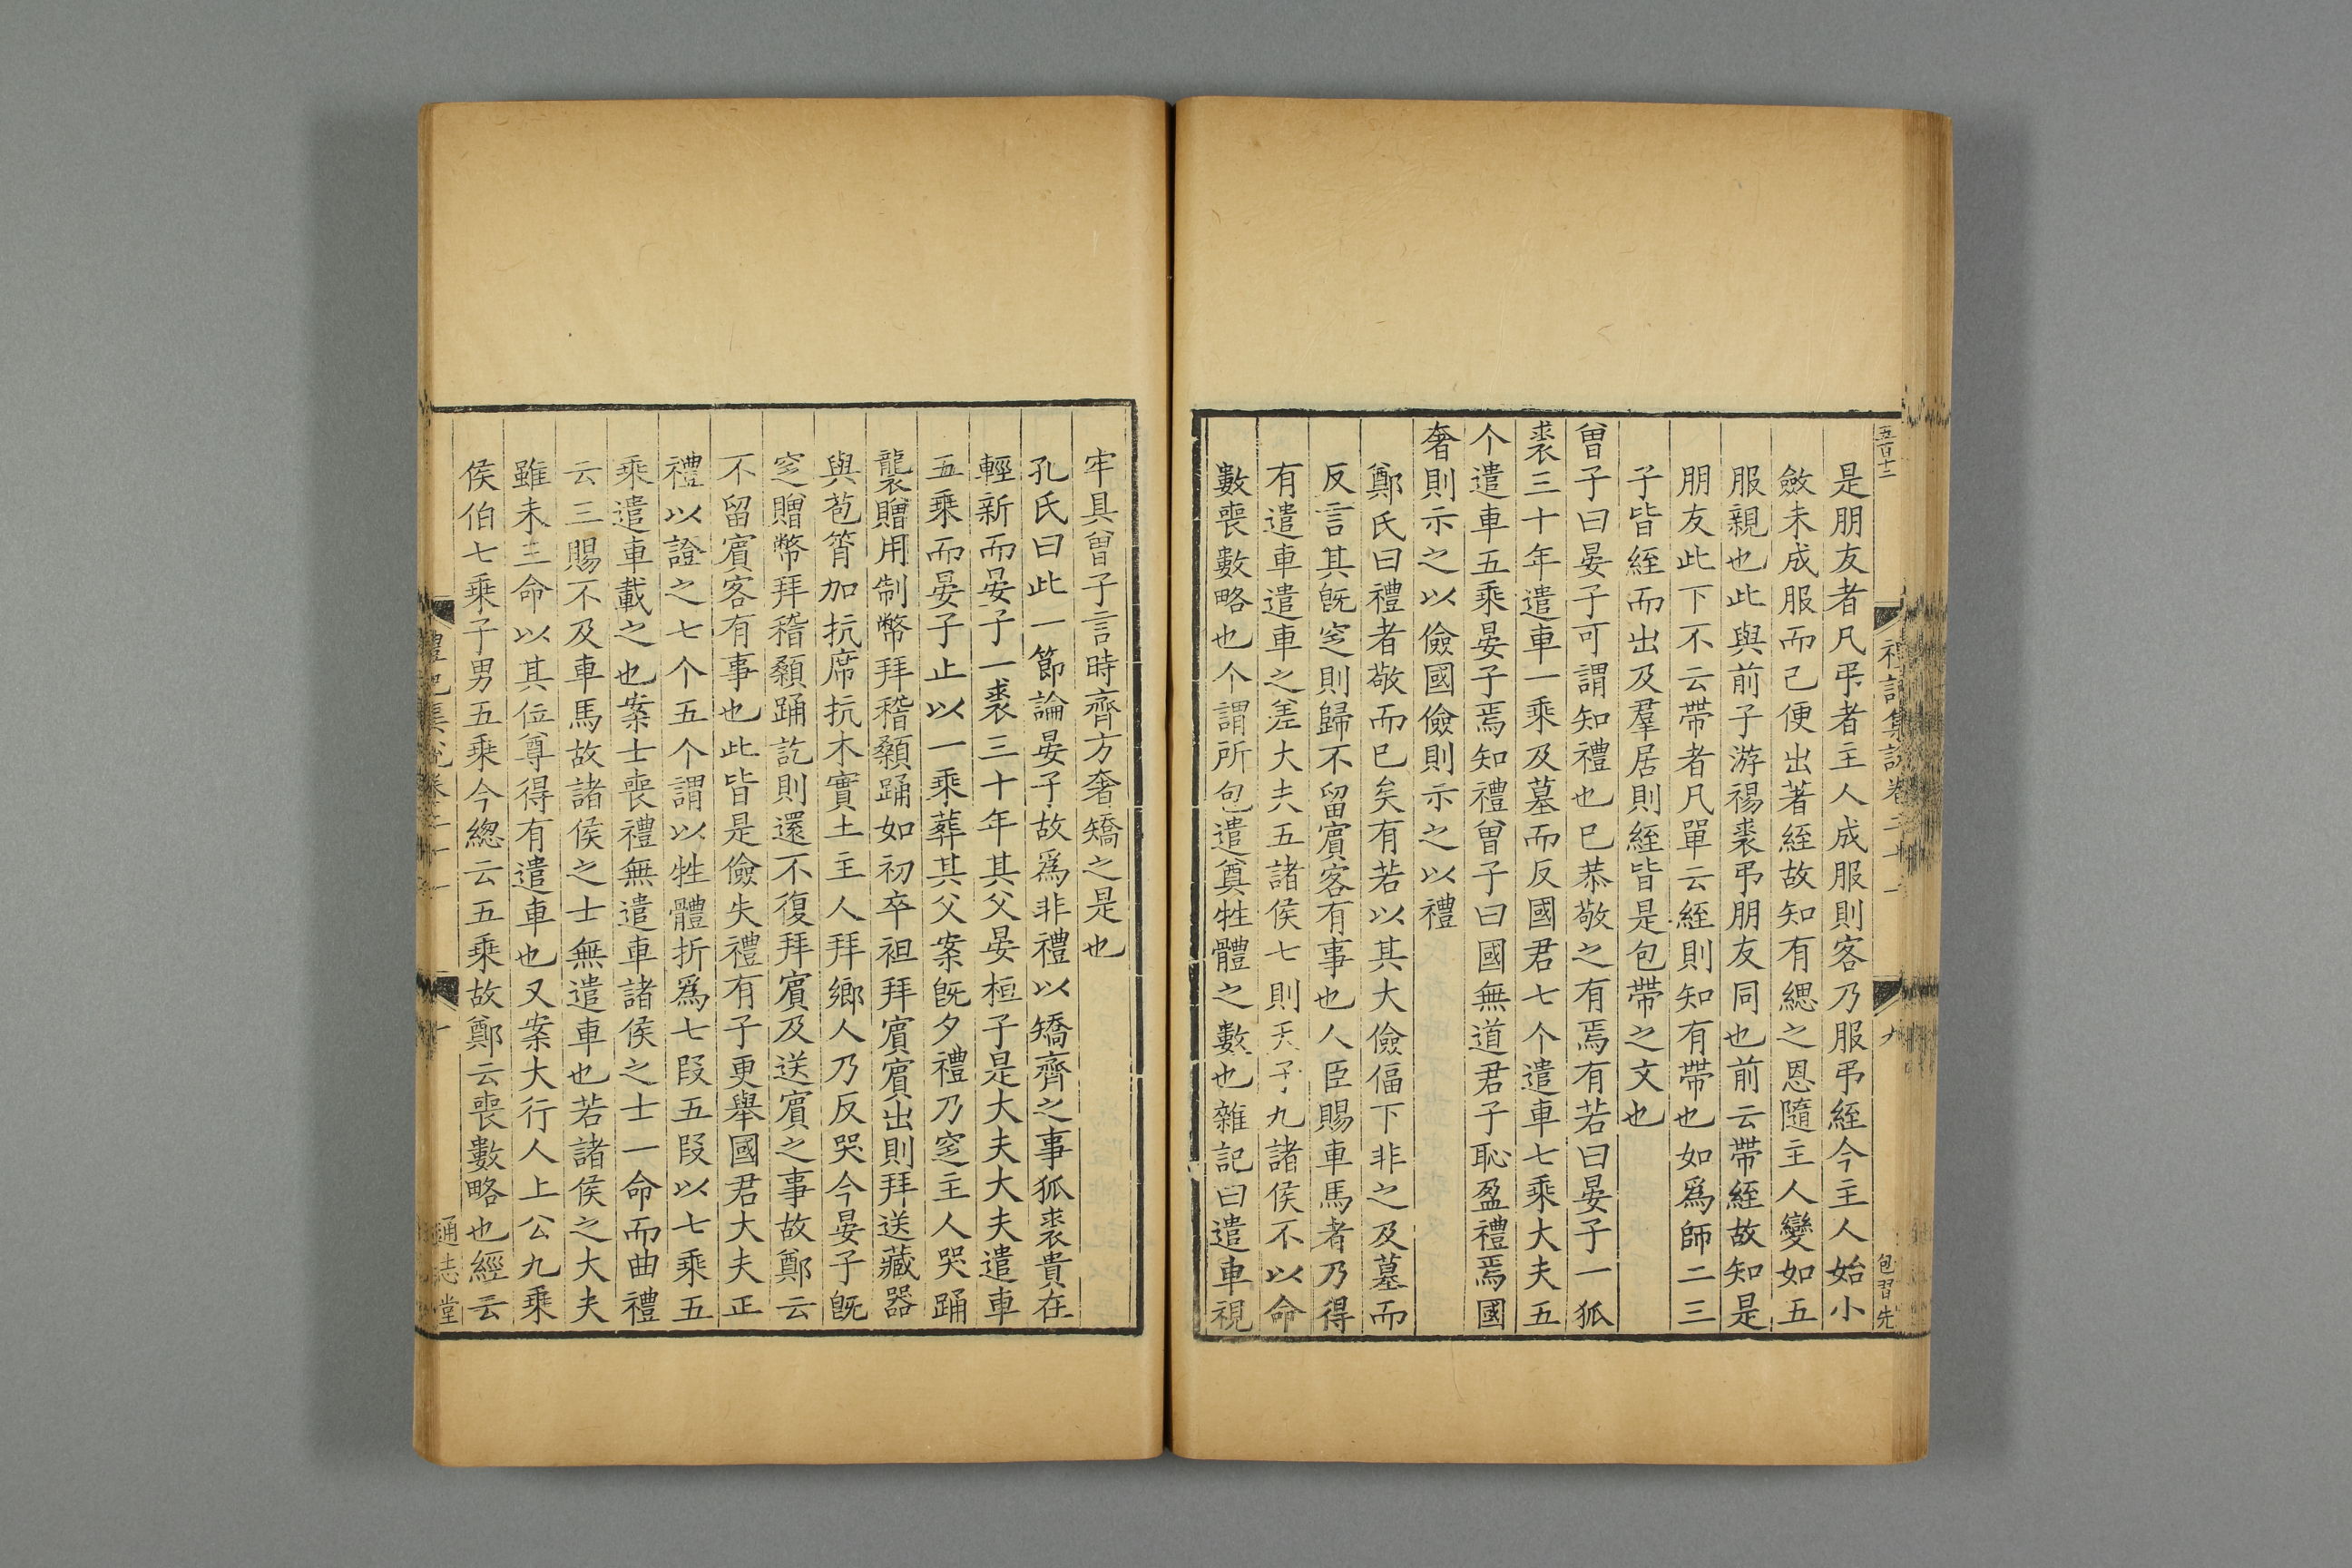 五百十二
禮記集說卷二十一
九
包習先
是朋友者凡弔者主人成服則客乃服弔絰今主人始小
斂未成服而己便出著絰故知有緦之恩隨主人變如五
服親也此與前子游裼裘弔朋友同也前云帶絰故知是
朋友此下不云帶者凡單云絰則知有帶也如爲師二三
子皆絰而出及羣居則絰皆是包帶之文也
曾子曰晏子可謂知禮也已恭敬之有焉有若曰晏子一狐
裘三十年遣車一乘及墓而反國君七个遣車七乘大夫五
个遣車五乘晏子焉知禮曾子曰國無道君子恥盈禮焉國
奢則示之以儉國儉則示之以禮
鄭氏曰禮者敬而已矣有若以其大儉偪下非之及墓而
反言其旣窆則歸不留賓客有事也人臣賜車馬者乃得
有遣車遣車之差大夫五諸侯七則天子九諸侯不以命
數喪數略也个謂所包遣奠牲體之數也雜記曰遣車視
牢具曾子言時齊方奢矯之是也
孔氏曰此一節論晏子故爲非禮以矯齊之事狐裘貴在
輕新而晏子一裘三十年其父晏桓子是大夫大夫遣車
五乘而晏子止以一乘葬其父案旣夕禮乃窆主人哭踊
襲贈用制幣拜稽顙踊如初卒袒拜賓賓出則拜送藏器
與苞筲加抗席抗木實土主人拜鄉人乃反哭今晏子旣
窆贈幣拜稽顙踊訖則還不復拜賓及送賓之事故鄭云
不留賓客有事也此皆是儉失禮有子更舉國君大夫正
禮以證之七个五个謂以牲體折爲七段五段以七乘五
乘遣車載之也案士喪禮無遣車諸侯之士一命而曲禮
云三賜不及車馬故諸侯之士無遣車也若諸侯之大夫
雖未三命以其位尊得有遣車也又案大行人上公九乘
侯伯七乘子男五乘今緫云五乘故鄭云喪數略也經云
禮記集說卷二十一
十
通志堂